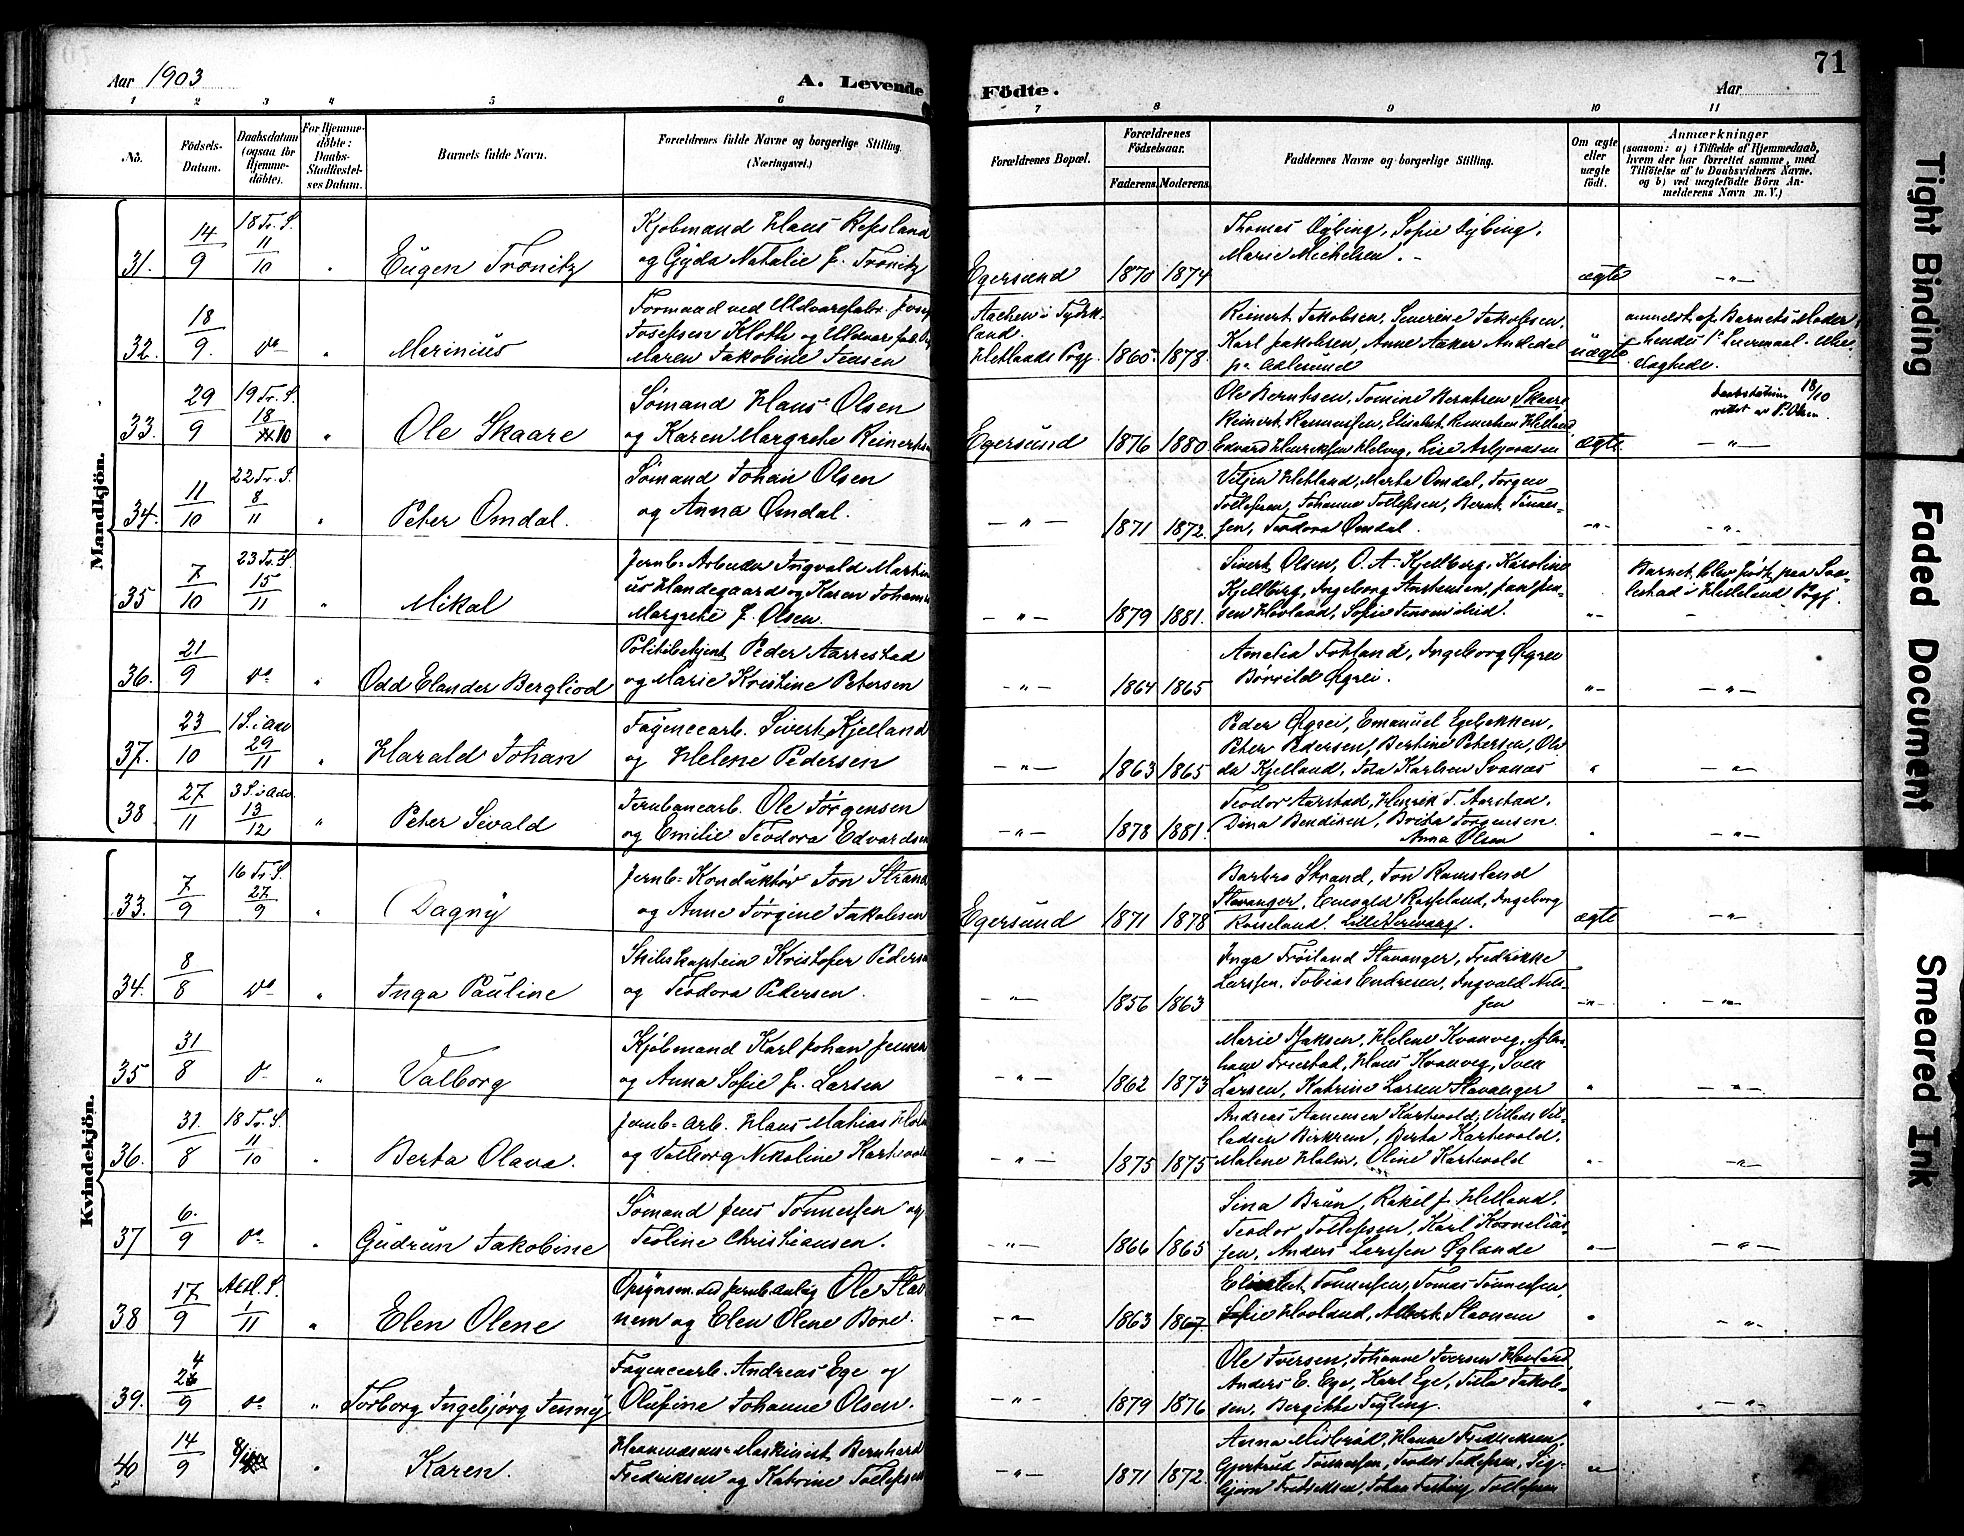 Aar 1903
A. Levende Födte.
Aar
71
1 2 3 4 5 6 7 8 9 10 11
No.
Födsels-Datum.
Daabsdatum (ogsaa for Hjemmedöbte).
For Hjemmedöbte: Daabs-Stadfæstelses Datum.
Barnets fulde Navn.
Forældrenes fulde Navne og borgerlige Stilling. (Næringsvei.)
Forældrenes Bopæl.
Forældrenes Födselsaar.
Faderens. Moderens.
Faddernes Navne og borgerlige Stilling.
Om ægte eller uægte födt.
Anmærkninger
(saasom: a) i Tilfælde af Hjemmedaab, hvem der har forrettet samme, med Tilföielse af to Daabsvidners Navne. og b) ved uægtefödte Börn Anmelderens Navn m. V.)
Mandkjön.
31. 14/9 18 Tr. S. 11/10 " Eugen Tronitz
Kjøbmand Hans Repsland
og Gyda Natalie f. Tronitz
Egersund 1870 1874
Thomas Dybing, Sofie Dybing,
Marie Michelsen. –
ægte –"–
32. 18/9. do " Marinius
Formand ved Uldvarefabr. Josef
Josefsen Kloth og Uldvarefab.
Maren Jakobine Jensen
Aachen i Tydsk-
land
Hetlands Pgj. 1865. 1878.
Reinert Jakobsen, Severine Jakobsen,
Karl Jakobsen, Anne Aaker Andedal
pr Aalesund
uægte
anmeldt af Barnets Moder,
hendes 1ste Leiermaal.
33. 29/9 19 Tr. S. 18/10 " Ole Skaare
Sømand Hans Olsen
og Karen Margrethe Reinertsen
Egersund 1876 1880
Ole Berntsen, Tomine Berntsen Skaare
Reinert Rasmussen, Elisabet Reinertsen Helland
Edvard Henriksen Helvig, Lise Asbjørnsen
ægte
Daabsdatum 18/10
rettet av P. Olsen.
–"–
34. 11/10 22 Tr. S. 8/11 " Peter Omdal.
Sømand Johan Olsen
og Anna Omdal.
–"– 1871 1872.
Viljen Hetland, Marta Omdal, Jørgen
Tollefsen, Johanne Tollefsen, Bernt Tønnes-
sen, Teodora Omdal.
–"– –"–
35 7/10 23 Tr. S. 15/11 " Mikal
Jernb.-Arbeider Ingvald Martin
ius Handegaard og Karen Johanne
Margrethe f. Olsen.
–"– 1879 1881.
Sivert Olsen, O. A. Kjellberg, Karoline
Kjellberg, Ingeborg Anstensen, Jan Jen-
sen Hovland, Sofie Jensen ibid.
–"–
Barnet blev født paa Sva-
lestad i Helleland Pgj.
36. 21/9 do " Odd Elander Bergliod
Politibetjent Peder Aarrestad
og Marie Kristine Petersen
–"– 1864 1865
Amelia Fotland, Ingeborg Øgrei
Børrild Øgrei.
–"– –"–
37. 23/10 1 S. i Adv 29/11 " Harald Johan
Fayencearb. Sivert Kjelland
og Helene Pedersen
–"– 1863 1865
Peder Øgrei, Emanuel Egebakken,
Peter Pedersen, Bertine Petersen, Ol-
da Kjelland, Tola Karlsen Svanæs
" –"–
38 27/11 3 S. i Adv. 13/12 " Peter Sevald
Jernbanearb. Ole Jørgensen
og Emilie Teodora Edvardsen
–"– 1878 1881.
Teodor Aarstad, Henrik T. Aarstad,
Dina Bendiksen, Brita Jørgensen.
Anna Olsen
" –"–
Kvindekjön.
33. 7/9 16 Tr. S. 27/9 " Dagny
Jernb.-Konduktør Jon Strand
og Anne Jørgine Jakobsen
Egersund 1871 1878
Barbro Strand, Jon Ramsland
Stavanger, Enevald Rosseland, Ingeborg
Rosseland.
ægte –"–
34. 8/8 do " Inga Pauline
Skibskaptein Kristofer Pedersen
og Teodora Pedersen.
–"– 1856 1863
Inga Frøiland Stavanger, Fredrikke
Larsen, Tobias Endresen, Ingvald Nils-
sen
–"– –"–
35 31/8 do " Valborg
Kjøbmand Karl Johan Jensen
og Anna Sofie f. Larsen
–"– 1862 1873
Marie Isaksen, Helene Kvanveg, Abra-
ham Friestad, Hans Kvanveg, Sven
Larsen, Katrine Larsen Stavanger
" –"–
36. 31./8 18 Tr. S. 11/10 " Berta Olava.
Jernb.-Arb. Hans Mathias Holm
og Valborg Nikoline Kartevold
–"– 1875 1875
Andreas Aanensen Kartevold, Villads Vil-
ladsen Birkrem, Berta Kartevold.
Malene Holm, Oline Kartevold
" –"–
37 6./9 do " Gudrun Jakobine
Sømand Jens Tønnessen og
Teoline Christiansen.
–"– 1866 1865
Sina Brun, Rakel f. Helland,
Teodor Tollefsen, Karl Kornelius-
sen, Anders Larsen Øglænde
" –"–
38 17/9 Allel. S. 1/11 " Elen Olene
Opsynsm. ved Jernb.anlæg Ole Stav-
nem og Elen Olene Bore.
–"– 1863 1867.
Elisabet Tønnessen, Tomas Tønnessen,
Sofie Hovland, Albert Stavnem
" –"–
39. 24/9 do " Torborg Ingebjørg Jenny
Fayencearb. Andreas Ege og
Olufine Johanne Olsen.
–"– 1879 1876
Ole Iversen, Johanne Iversen Hovland,
Anders E. Ege, Karl Ege, Tilla Jakob-
sen, Bergitte Tegling.
" –"–
40 14/9 " Karen.
Maskinist Bernhard
Fredriksen og Katrine Tollefsen
–"– 1871 1872.
Anna Misbrød, Hanne Fredriksen,
Gjertrud Tønnessen, Teodor Tollefsen, Sig-
bjørn Fredriksen, Tollefsen
" –"–
Tight Binding
Faded Document
Smeared Ink